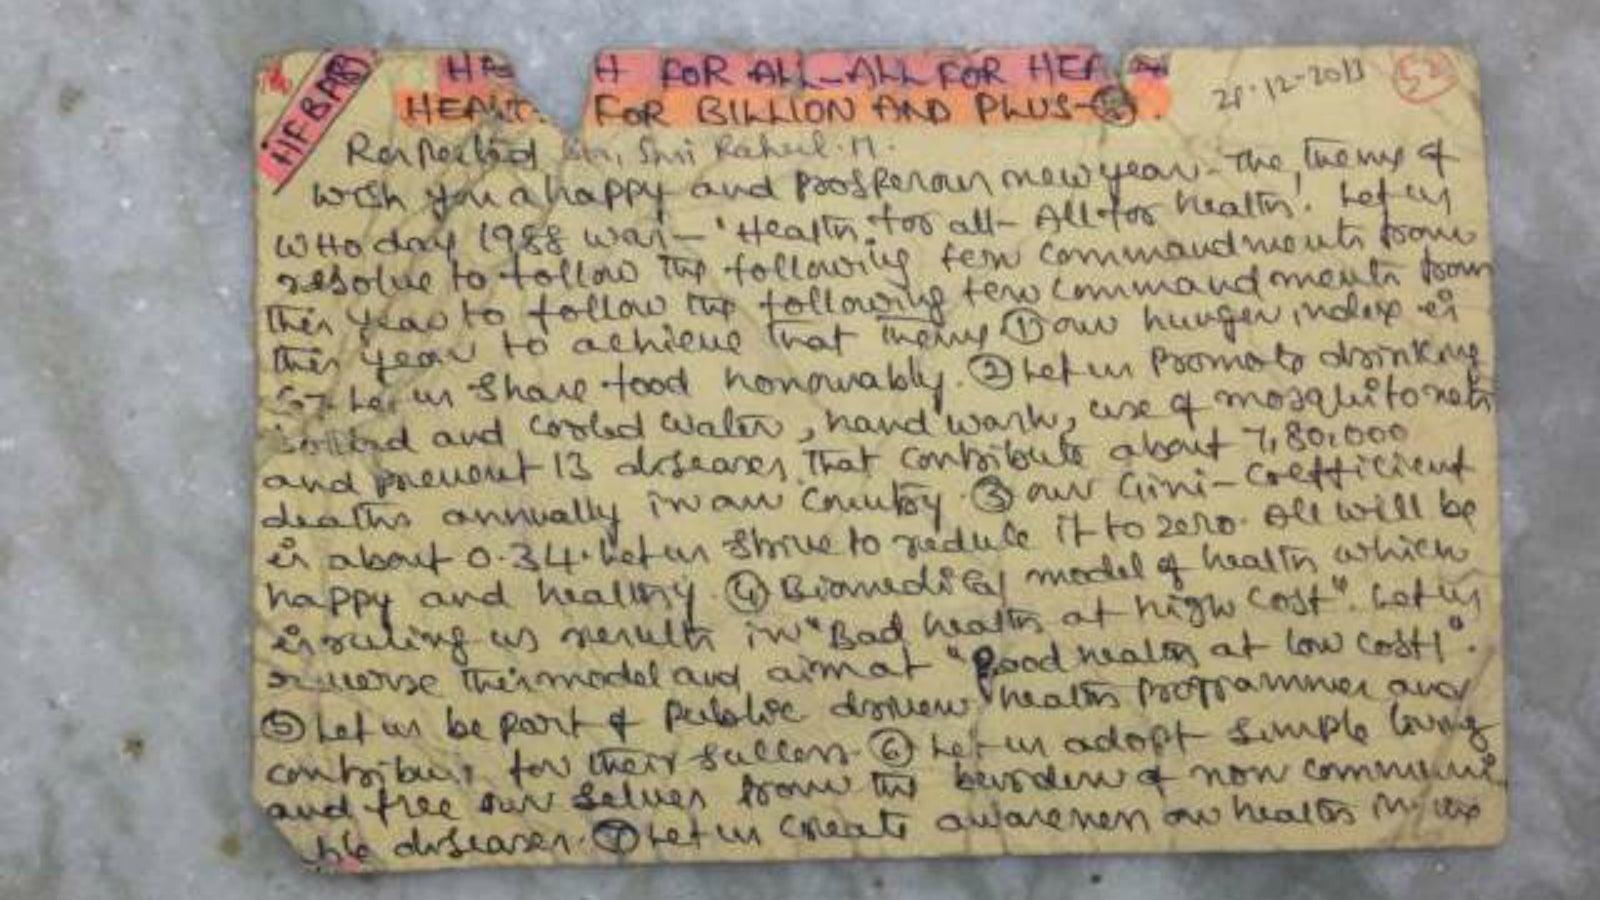 HFBAP
H FOR ALL-ALL FOR HEA
FOR BILLION AND PLUS-
28-12-2013
52
Respected Sir, Shri Rahul.M.
Wish you a happy and prosperous new year. The theme of
WHO day 1988 was - 'Health for all - All for health'. Let us
resolve to follow the following few commandments from
this year to follow the following few commandments from
this year to achieve that theme ① our hunger index is
67. Let us share food honourably. ② Let us promote drinking
boiled and cooled water, hand wash, use of mosquito nets
and prevent 13 diseases that contribute about 7,80,000
deaths annually in our country. ③ our Gini-Coefficient
is about 0.34. Let us strive to reduce it to zero. All will be
happy and healthy. ④ Biomedical model of health which
is ruling us results in "Bad health at high cost". Let us
reverse this model and aim at "Good health at low cost!".
⑤ Let us be part of public driven health programmes and
contribute for their success. ⑥ Let us adopt simple living
and free our selves from the burden of non communi
ble diseases. ⑦ Let us create awareness on health in